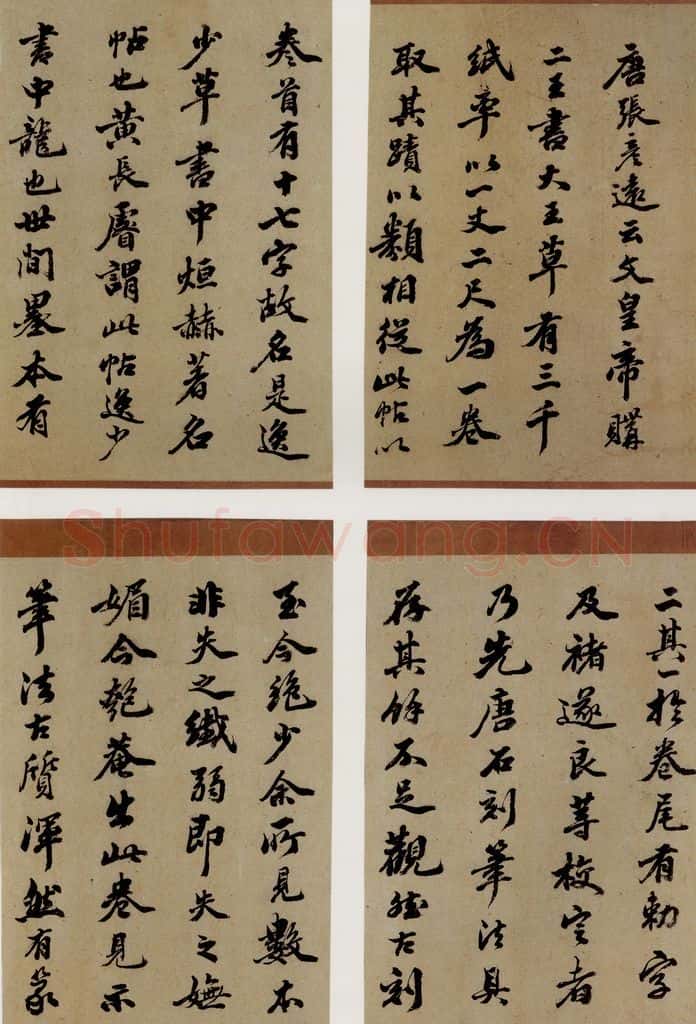 唐張彥遠云文皇帝購
二王書大王草有三千
紙率以一丈二尺為一卷
取其蹟以類相從此帖以
卷首有十七字故名是逸
少草書中烜赫著名
帖也黃長睿謂此帖逸少
書中龍也世間墨本有
二其一於卷尾有勅字
及褚遂良等校定者
乃先唐石刻筆法具
存其餘不足觀然古刻
至今絕少余所見數本
非失之纖弱即失之嫵
媚今匏菴出此卷見示
筆法古質渾然有篆
Shufawang.CN